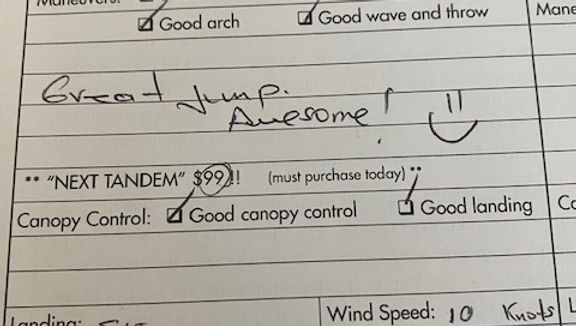 Maneuvers: Mane
Good arch Good wave and throw
Great jump.
Awesome!
** "NEXT TANDEM" $99!! (must purchase today) **
Canopy Control: Good canopy control Good landing
Landing: Wind Speed: 10 Knots L